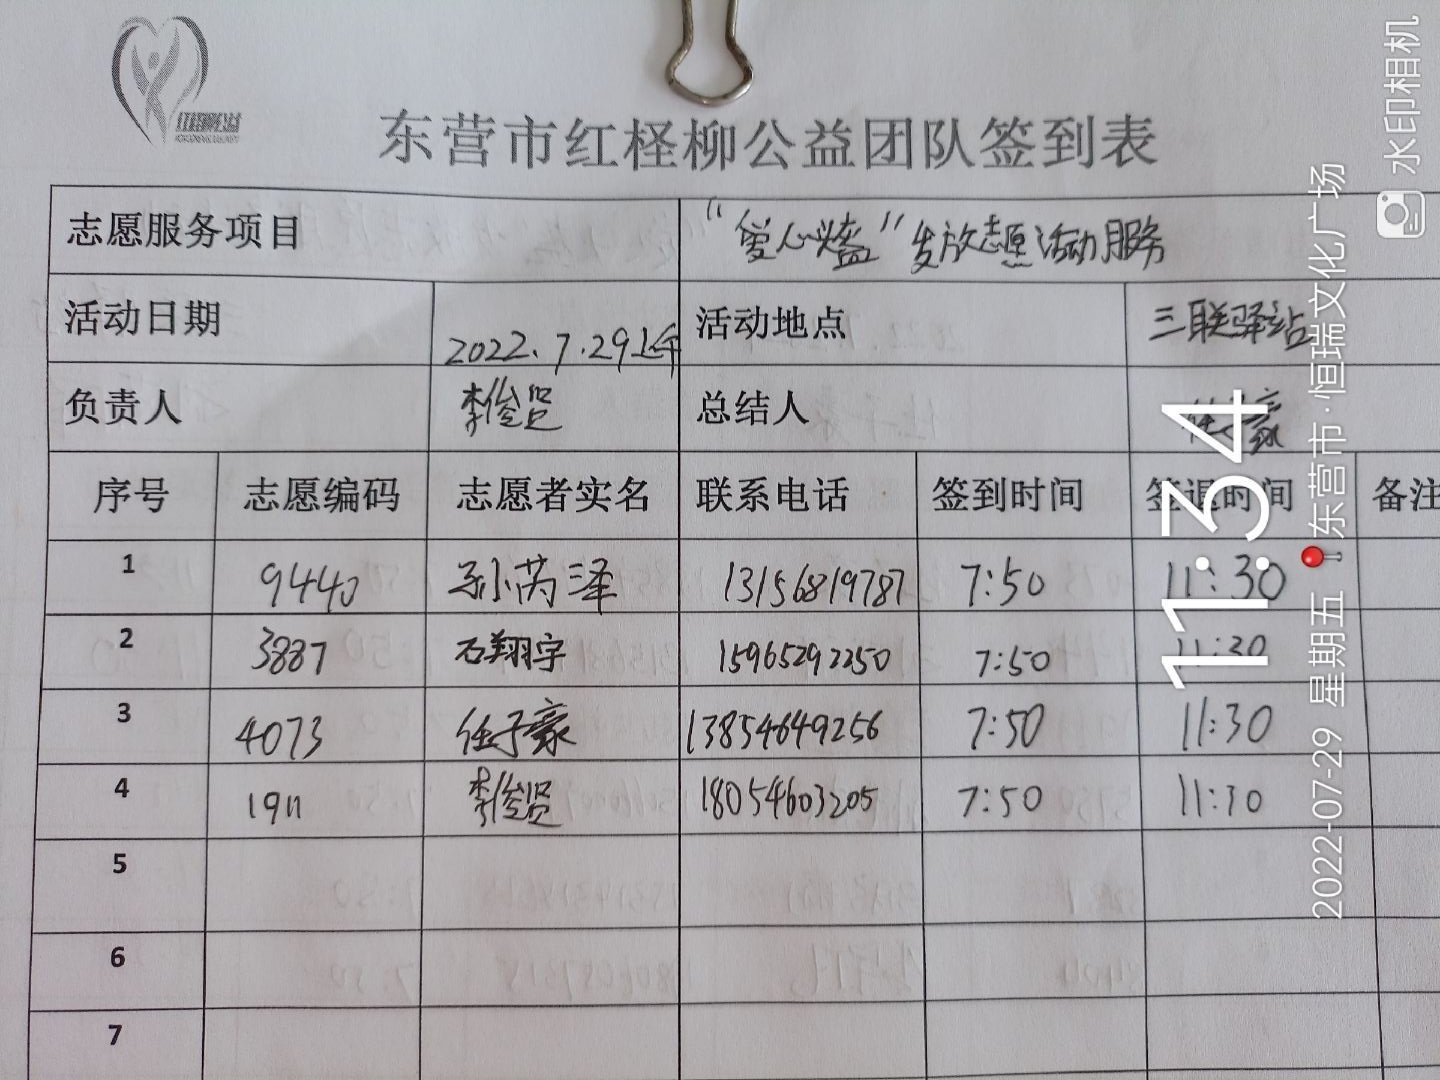 红柽柳公益
东营市红柽柳公益团队签到表
志愿服务项目 "爱心 " 发放志愿活动服务
活动日期 2022.7.29上午 活动地点 三联驿站
负责人 李俊贤 总结人 任子豪
序号 志愿编码 志愿者实名 联系电话 签到时间 签退时间 备注
1 9440 孙芮泽 13156819787 7:50 11:30
2 3887 石翔宇 15965292250 7:50 11:30
3 4073 任子豪 13854649256 7:50 11:30
4 1911 李俊贤 18054603205 7:50 11:30
5
6
7
11:34
2022-07-29 星期五 东营市·恒瑞文化广场
水印相机